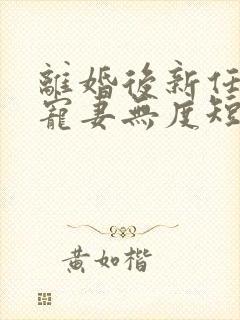 離婚後新任
寵妻無度短
黃如楷